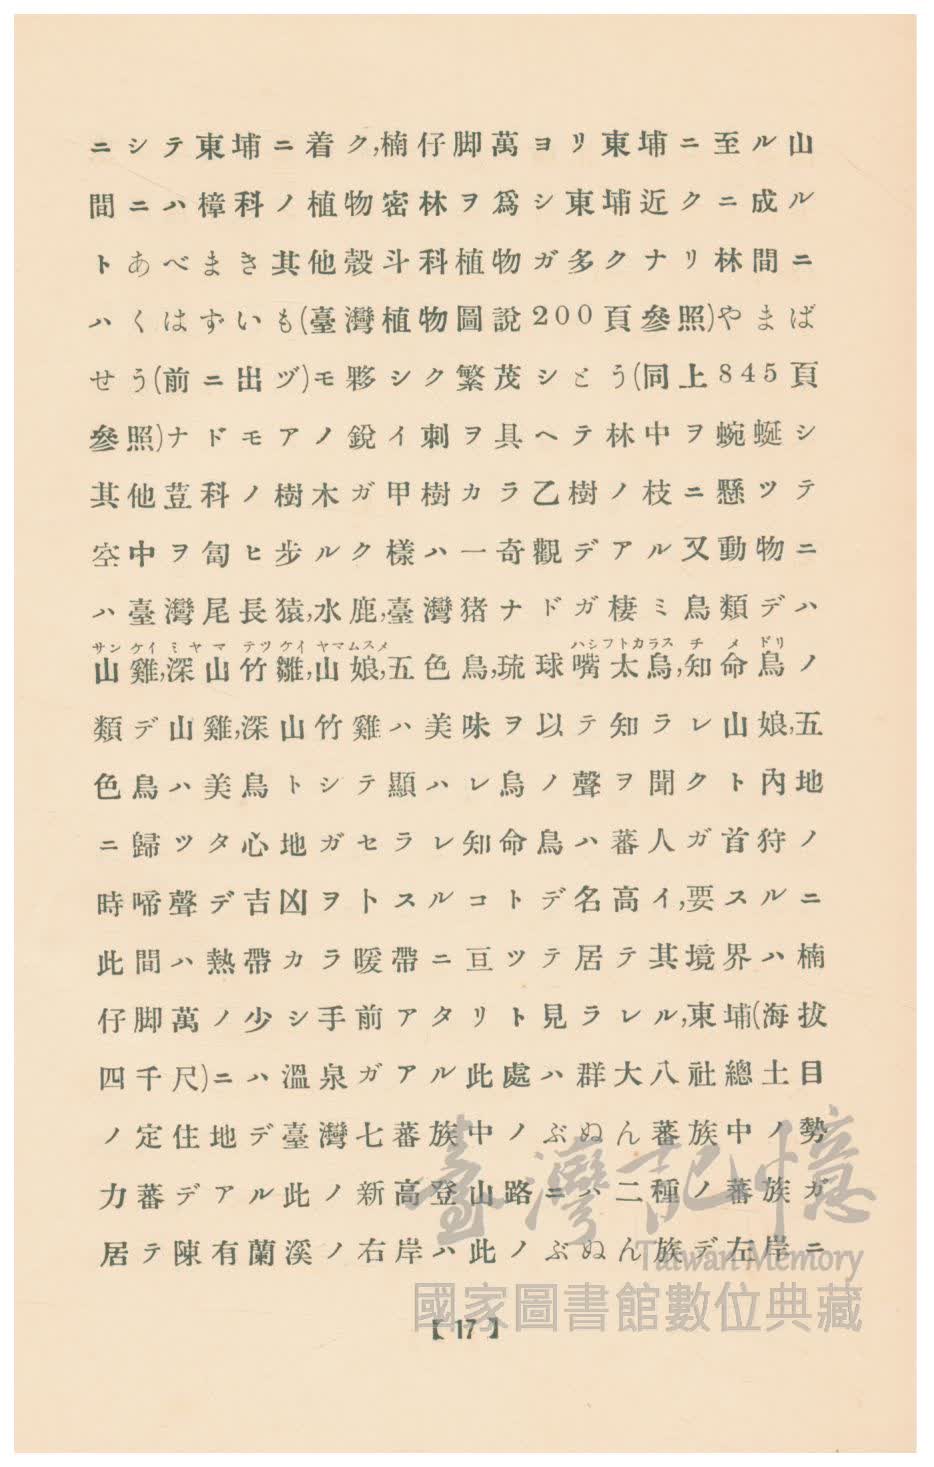 ニシテ東埔ニ着ク,楠仔脚萬ヨリ東埔ニ至ル山
間ニハ樟科ノ植物密林ヲ爲シ東埔近クニ成ル
トあべまき其他殼斗科植物ガ多クナリ林間ニ
ハくはずいも(臺灣植物圖說200頁參照)やまば
せう(前ニ出ヅ)モ夥シク繁茂シとう(同上845頁
參照)ナドモアノ銳イ刺ヲ具ヘテ林中ヲ蜿蜒シ
其他荳科ノ樹木ガ甲樹カラ乙樹ノ枝ニ懸ツテ
空中ヲ匐ヒ步ルク樣ハ一奇觀デアル又動物ニ
ハ臺灣尾長猿,水鹿,臺灣猪ナドガ棲ミ鳥類デハ
サンケイ ミヤマ テツケイ ヤマムスメ ハシフトカラス チメドリ
山雞,深山竹雞,山娘,五色鳥,琉球嘴太烏,知命鳥ノ
類デ山雞,深山竹雞ハ美味ヲ以テ知ラレ山娘,五
色鳥ハ美鳥トシテ顯ハレ烏ノ聲ヲ聞クト內地
ニ歸ツタ心地ガセラレ知命鳥ハ蕃人ガ首狩ノ
時啼聲デ吉凶ヲトスルコトデ名高イ,要スルニ
此間ハ熱帶カラ暖帶ニ亘ツテ居テ其境界ハ楠
仔脚萬ノ少シ手前アタリト見ラレル,東埔(海拔
四千尺)ニハ溫泉ガアル此處ハ群大八社總土目
ノ定住地デ臺灣七蕃族中ノぶぬん蕃族中ノ勢
力蕃デアル此ノ新高登山路ニハ二種ノ蕃族ガ
居テ陳有蘭溪ノ右岸ハ此ノぶぬん族デ左岸ニ
【17】
臺灣記憶
Taiwan Memory
國家圖書館數位典藏